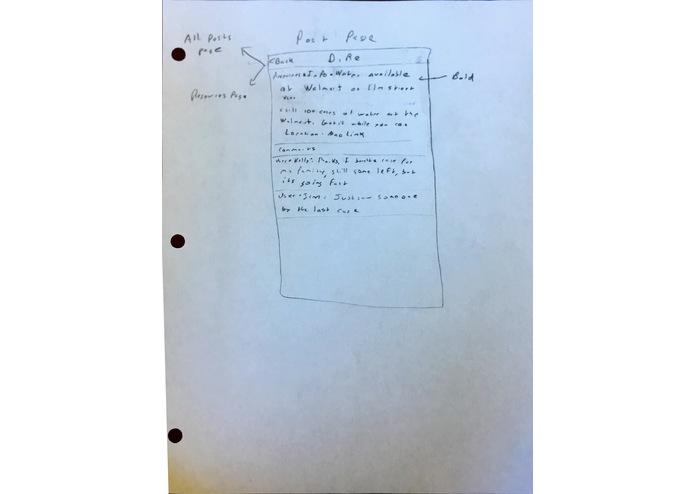 All Posts
page
Post Page
<Back D.Re
Resources Info • Water available
at Walmart on Elm street
Bold
Resources Page
still 100 cases of water at the
Walmart. Get it while you can
Location: Map Link
Comments
User Kelly: Thanks, I took a case for
my family, still some left, but
its going fast
User Jim: Just saw someone
buy the last case